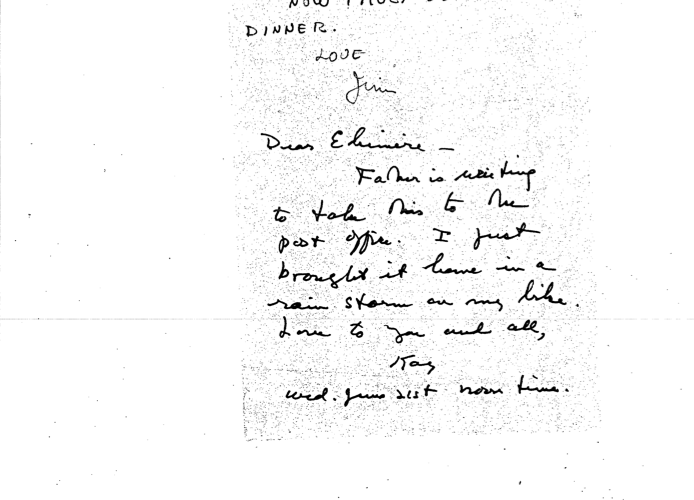 NOW
DINNER.
LOVE
Jim
Dear —
Father is waiting
to take this to the
post office. I just
brought it home in a
rain storm on my bike.
Love to you and all,
Kay
Wed. June 21st noon time.